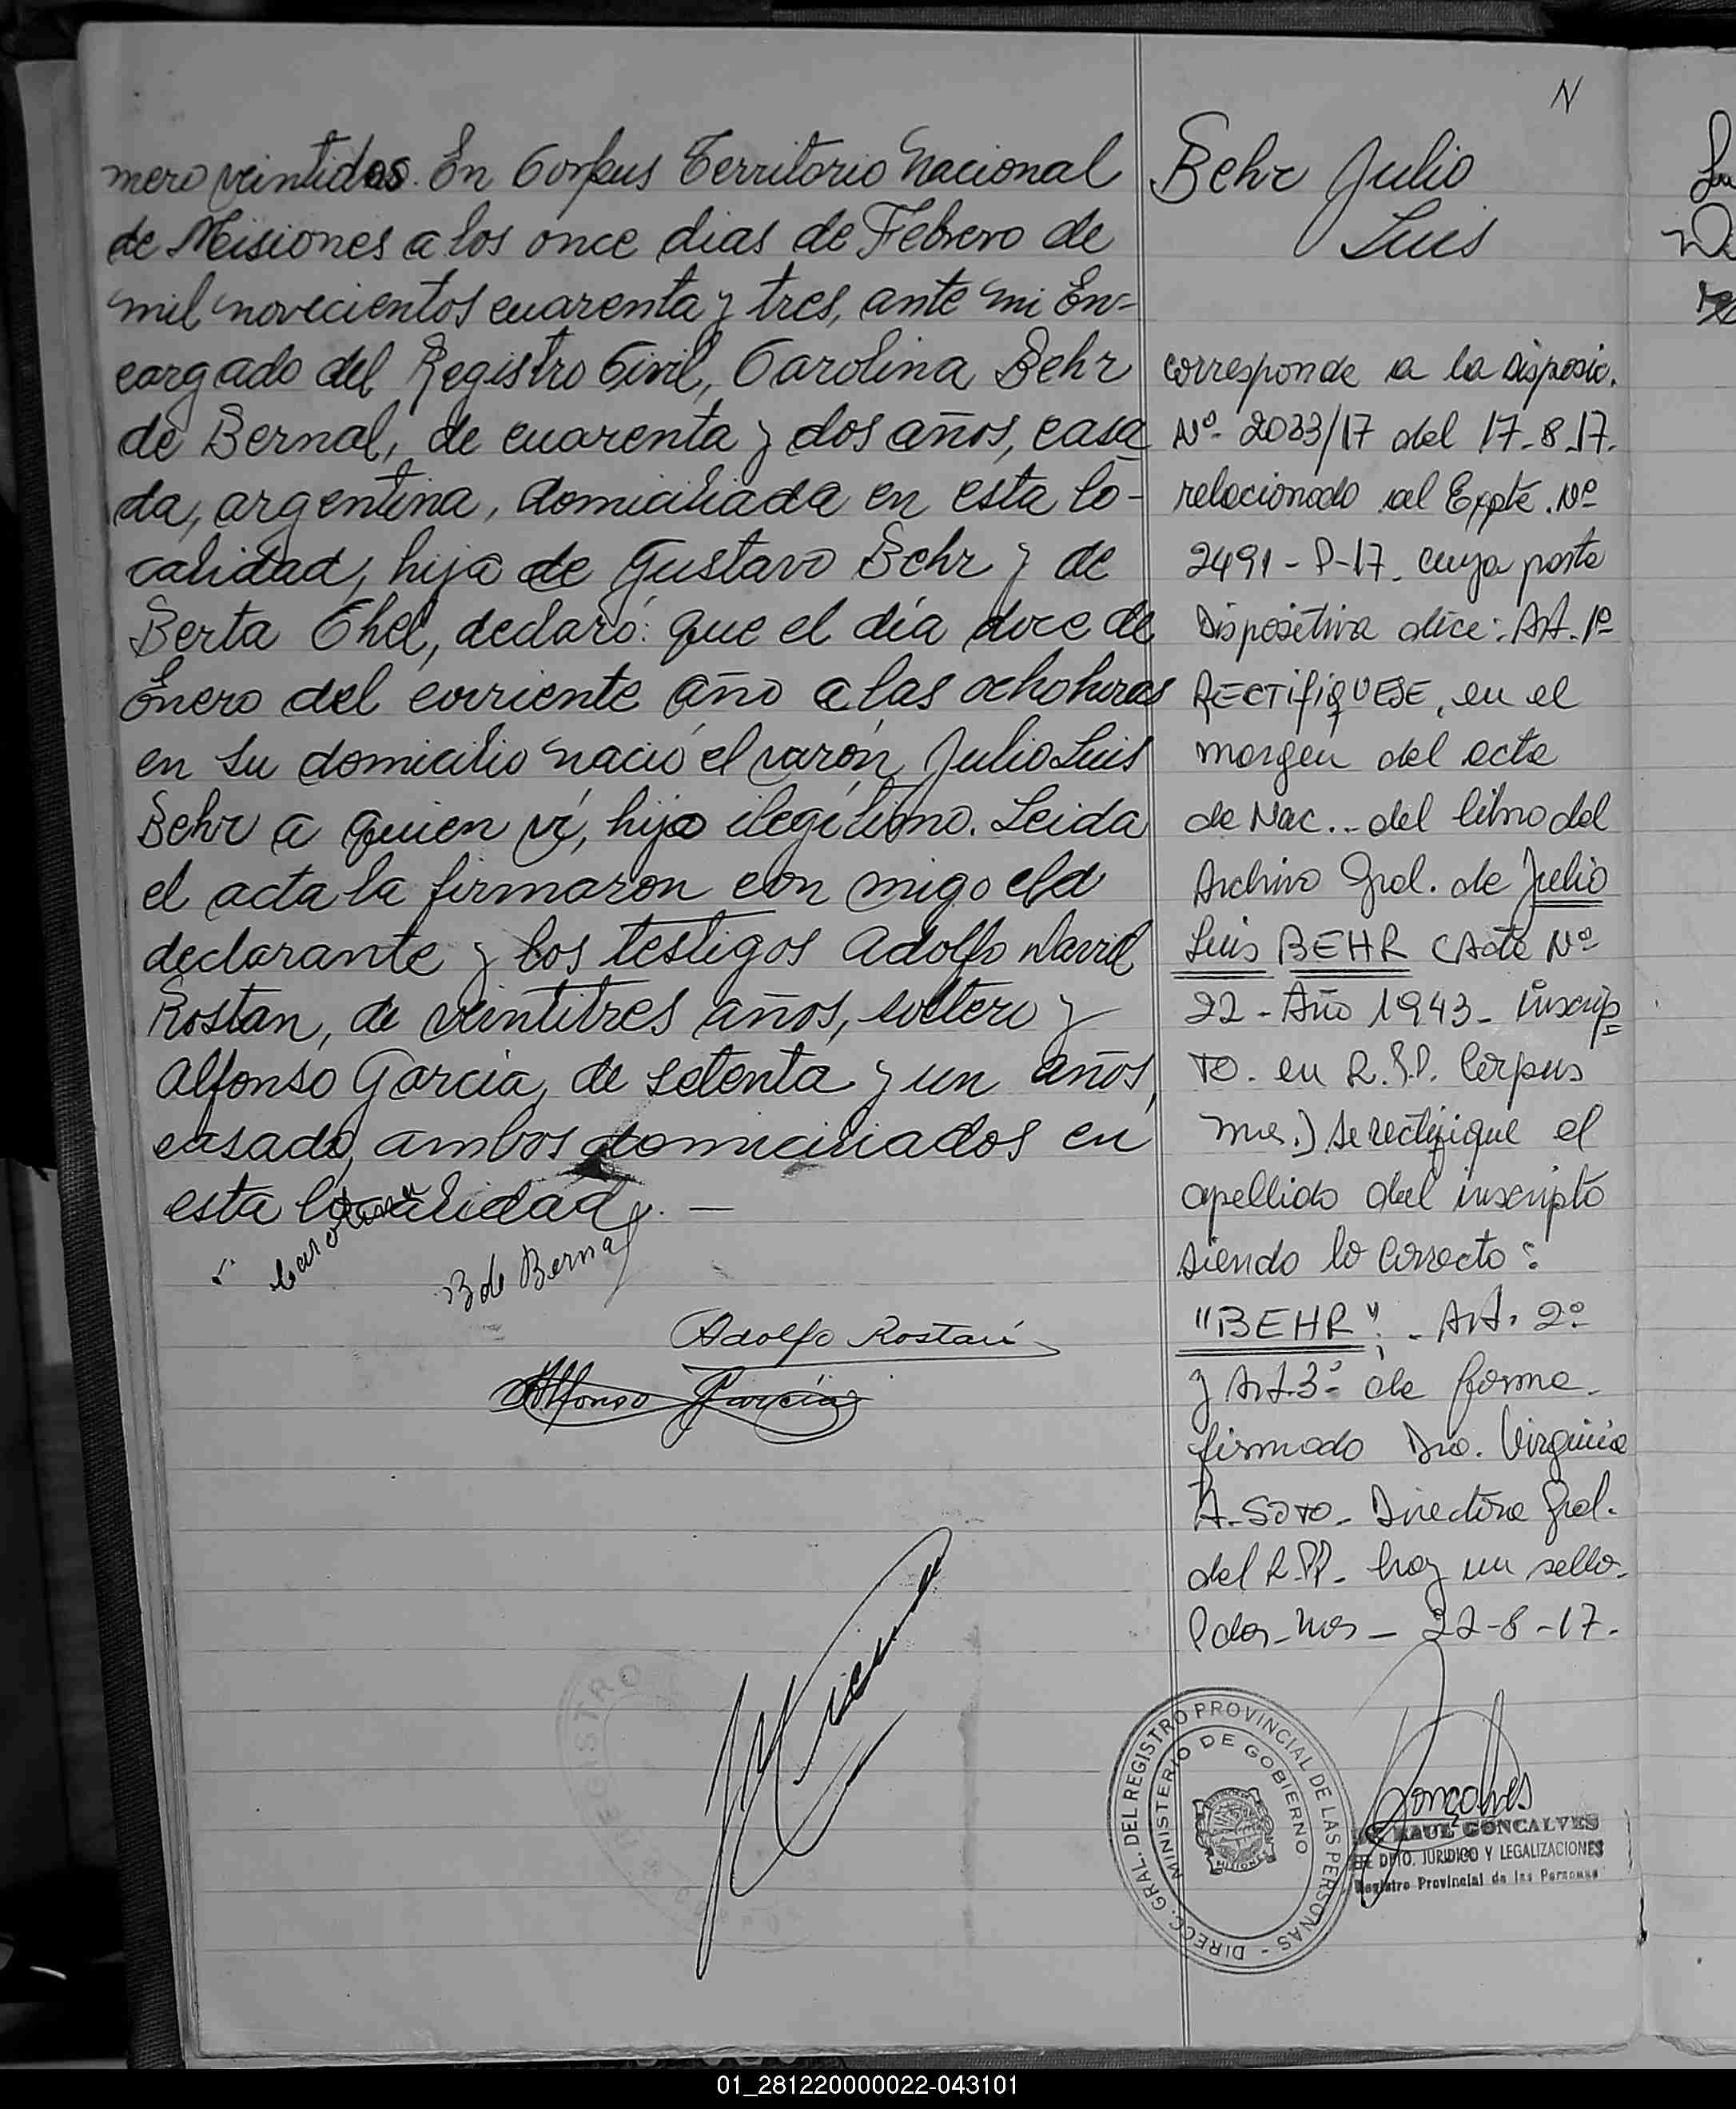 N
mero veintidos. En Corpus Territorio Nacional
de Misiones a los once dias de Febrero de
mil novecientos cuarenta y tres, ante mi En-
cargado del Registro Civil, Carolina Behr
de Bernal, de cuarenta y dos años, casa
da, argentina, domiciliada en esta lo-
calidad, hija de Gustavo Behr y de
Berta Ehel, declaró: que el día doce de
Enero del corriente año a las ocho horas
en su domicilio nació el varón Julio Luis
Behr a quien vi, hijo ilegítimo. Leida
el acta la firmaron con migo ela
declarante y los testigos Adolfo David
Rostan, de veintitres años, soltero y
Alfonso Garcia, de setenta y un años,
casado, ambos domiciliados en
esta localidad. —
Carolina
B de Bernal
Adolfo Rostan
Alfonso Garcia
REGISTRO
Behr Julio
Luis
corresponde a la Disposic.
Nº 2033/17 del 17-8-17.
relacionado al Expte. Nº
2491-P-17. cuya parte
Dispositiva dice: Art. 1º
RECTIFIQUESE, en el
margen del acta
de Nac... del libro del
Archivo Gral. de Julio
Luis BEHR (Acta Nº
22 - Año 1943 - inscrip
to. en R.P.P. Corpus
mnes.) se rectifique el
apellido del inscripto
siendo lo correcto:
"BEHR". - Art. 2º
y Art. 3º de forma.
firmado Dra. Virginia
A. Soto - Directora Gral.
del R.PP. hay un sello.
Pdas-Mnes - 22-8-17.
DIRECC. GRAL. DEL REGISTRO PROVINCIAL DE LAS PERSONAS -
MINISTERIO DE GOBIERNO
MISIONES
Goncalves
RAUL GONCALVES
DPTO. JURIDICO Y LEGALIZACIONES
Registro Provincial de las Personas
01_281220000022-043101